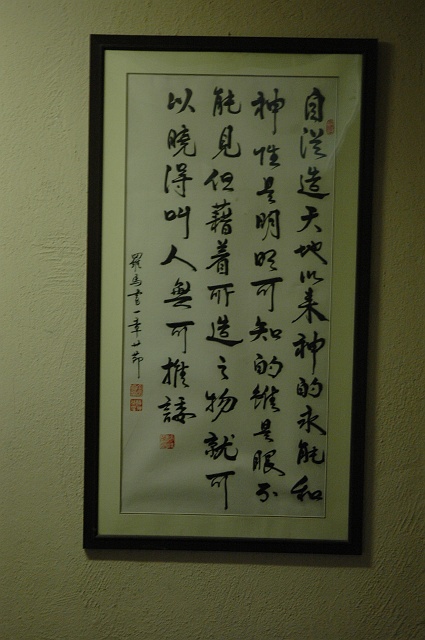 自從造天地以來神的永能和
神性是明明可知的雖是眼不
能見但藉着所造之物就可
以曉得叫人無可推諉
羅馬書一章廿節